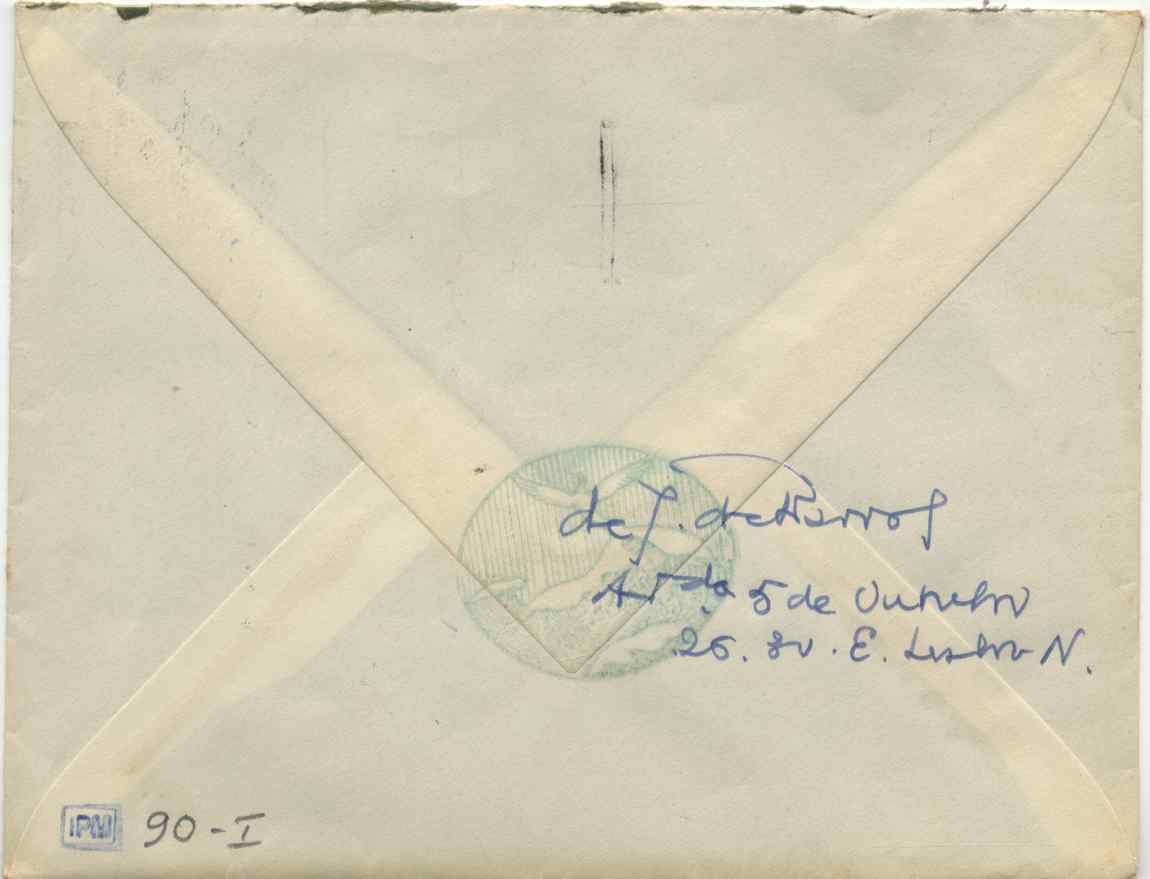 de J. de Barros
Avda 5 de Outubro
26. 3º. E. Lisboa N.
IPM 90-I